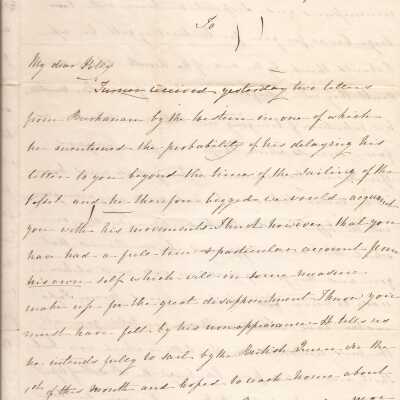 To
My dear
Turner received yesterday two letters
from Buchanan by the in one of which
he mentioned the probability of his delaying his
letter to you beyond the time of the sailing of the
and he therefore begged we would acquaint
you with his movements. I trust however that you
have had a full & particular account from
his own self which will in some measure
make up for the great disappointment I know you
must have felt by his non appearance. He tells us
he intends fully to sail by the British Queen on the
1st of this month and hopes to reach home about